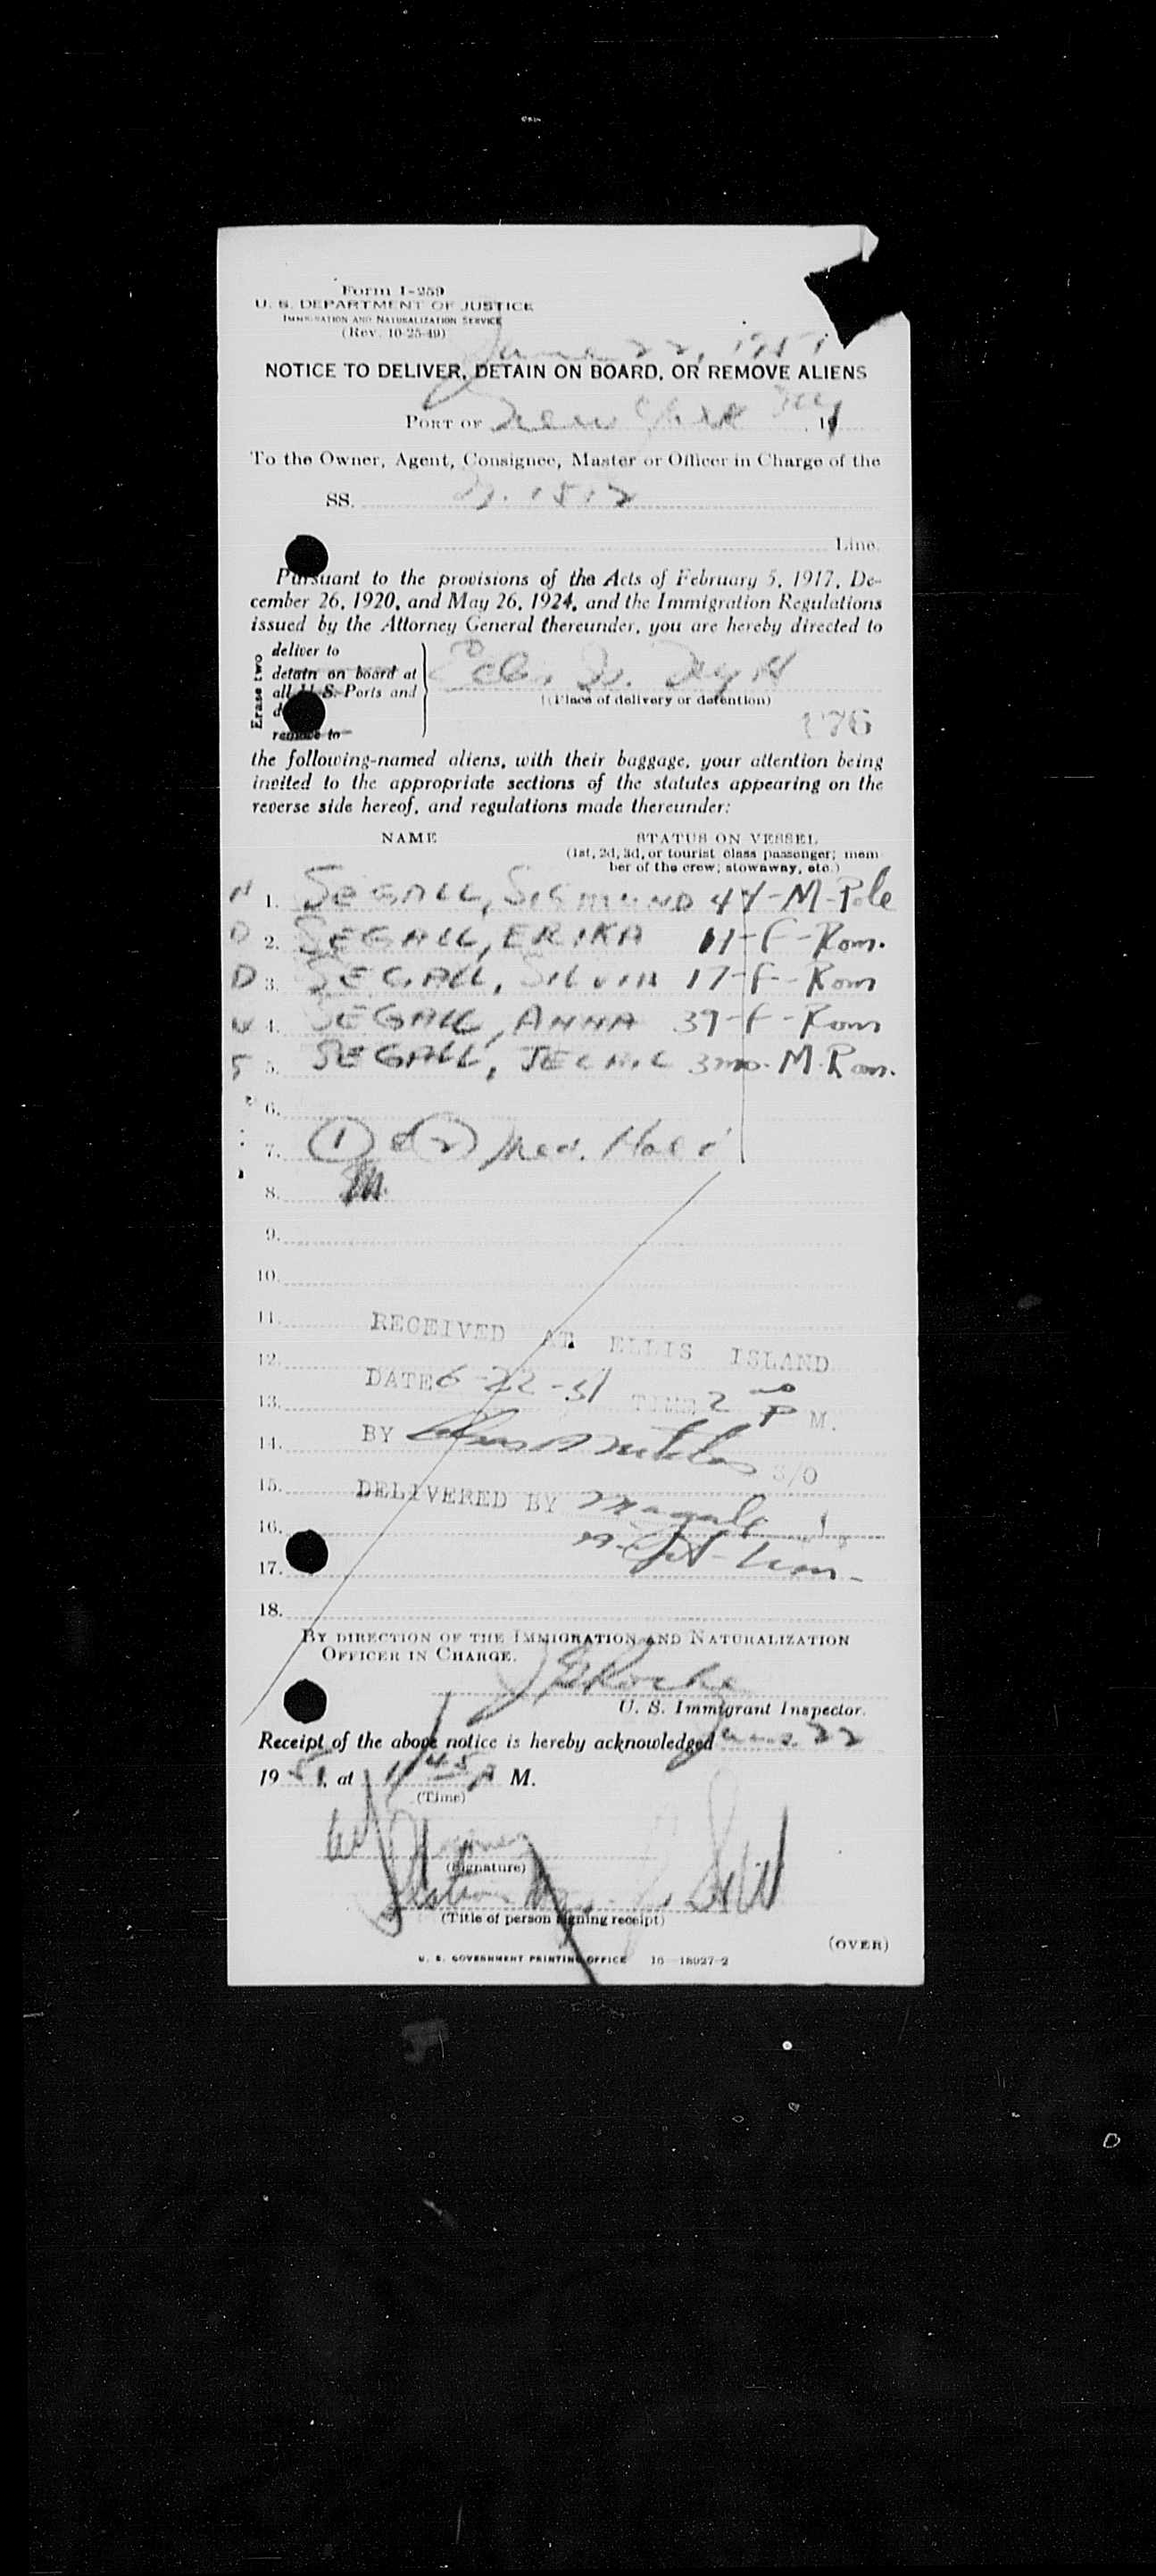 Form I-259
U. S. DEPARTMENT OF JUSTICE
IMMIGRATION AND NATURALIZATION SERVICE
(Rev. 10-25-49)
June 22, 1951
NOTICE TO DELIVER, DETAIN ON BOARD, OR REMOVE ALIENS
PORT OF New York NY, 19
To the Owner, Agent, Consignee, Master or Officer in Charge of the
SS.
Line.
Pursuant to the provisions of the Acts of February 5, 1917, De-
cember 26, 1920, and May 26, 1924, and the Immigration Regulations
issued by the Attorney General thereunder, you are hereby directed to
Erase two
deliver to
detain on board at
all U. S. Ports and
remove to
(Place of delivery or detention)
the following-named aliens, with their baggage, your attention being
invited to the appropriate sections of the statutes appearing on the
reverse side hereof, and regulations made thereunder:
NAME STATUS ON VESSEL
(1st, 2d, 3d, or tourist class passenger; mem-
ber of the crew; stowaway, etc.)
1. SEGALL, SIGMUND 44-M-Pole
2. SEGALL, ERIKA 11-F-Rom.
D 3. SEGALL, SILVIA 17-F-Rom
4. SEGALL, ANNA 39-F-Rom
5. SEGALL, 3 mo. M. Rom.
6.
7. (1) & (2) Med. Hold
8.
9.
10.
11. RECEIVED AT ELLIS ISLAND
12.
DATE 6-22-51 TIME 2 P M.
13.
14. BY S/O
15. DELIVERED BY
16.
17.
18.
BY DIRECTION OF THE IMMIGRATION AND NATURALIZATION
OFFICER IN CHARGE.
U. S. Immigrant Inspector.
Receipt of the above notice is hereby acknowledged June 22
1951, at 11 45 A M.
(Time)
(Signature)
(Title of person signing receipt)
(OVER)
U. S. GOVERNMENT PRINTING OFFICE 16—18027-2